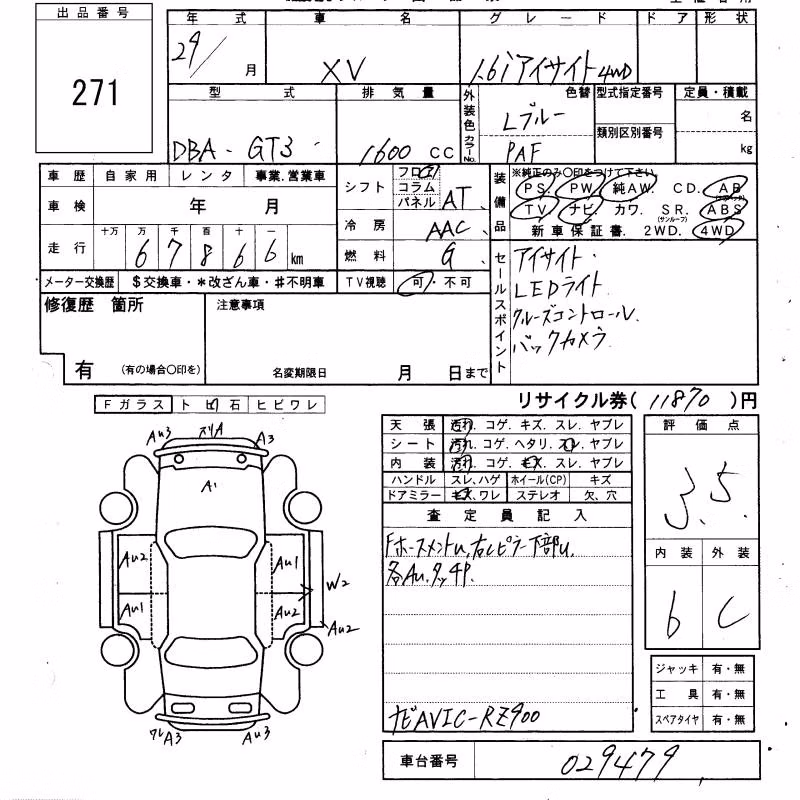 出品番号
271
年式 車名 グレード ドア 形状
29/ 月 XV 1.6i アイサイト 4WD
型式 排気量 外装色 カラーNo. 色替 型式指定番号 定員・積載
DBA - GT3 1600 CC Lブルー PAF 類別区別番号 名 kg
車歴 自家用 レンタ 事業.営業車
車検 年 月
走行 十万 万 千 百 十 一
6 7 8 6 6 km
シフト フロア コラム パネル AT
冷房 AAC
燃料 G
装備品 ※純正のみ〇印をつけて下さい
PS. PW. 純AW. CD. AB
TV. ナビ. カワ. SR. (サンルーフ) ABS
新車保証書. 2WD. 4WD
メーター交換歴 $交換車・*改ざん車・#不明車 TV視聴 可・不可
セールスポイント
アイサイト.
LEDライト
クルーズコントロール.
バックカメラ
修復歴 箇所 注意事項
有 (有の場合〇印を) 名変期限日 月 日まで
リサイクル券( 11870 )円
Fガラス トビ石 ヒビワレ
天張 汚れ. コゲ. キズ. スレ. ヤブレ
シート 汚れ. コゲ. ヘタリ. スレ. ヤブレ
内装 汚れ. コゲ. キズ. スレ. ヤブレ
ハンドル スレ.ハゲ ホイール(CP) キズ
ドアミラー キズ.ワレ ステレオ 欠、穴
評価点
3.5
内装 外装
6 C
査定員記入
Fホースメントu, 右Lピラー下部u.
各Au.タッチP.
ナビAVIC-RZ900
Au3 スリA A3
A1
Au2 Au1
Au1 Au2
W2
Au2
ワレA3 Au3
ジャッキ 有・無
工具 有・無
スペアタイヤ 有・無
車台番号 029479